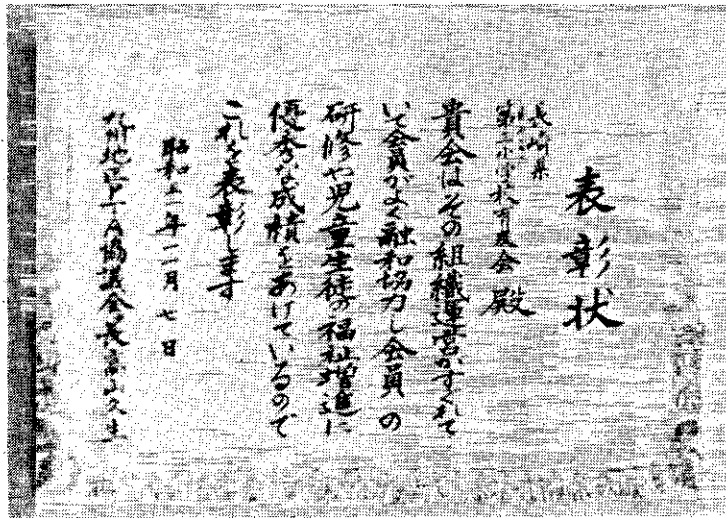 表彰状
長崎県
第二小学校育友会 殿
貴会はその組織運営がすぐれて
いて会員がよく融和協力し会員の
研修や児童生徒の福祉増進に
優秀な成績をあげているので
これを表彰します
昭和五一年一一月七日
九州地区PTA協議会長